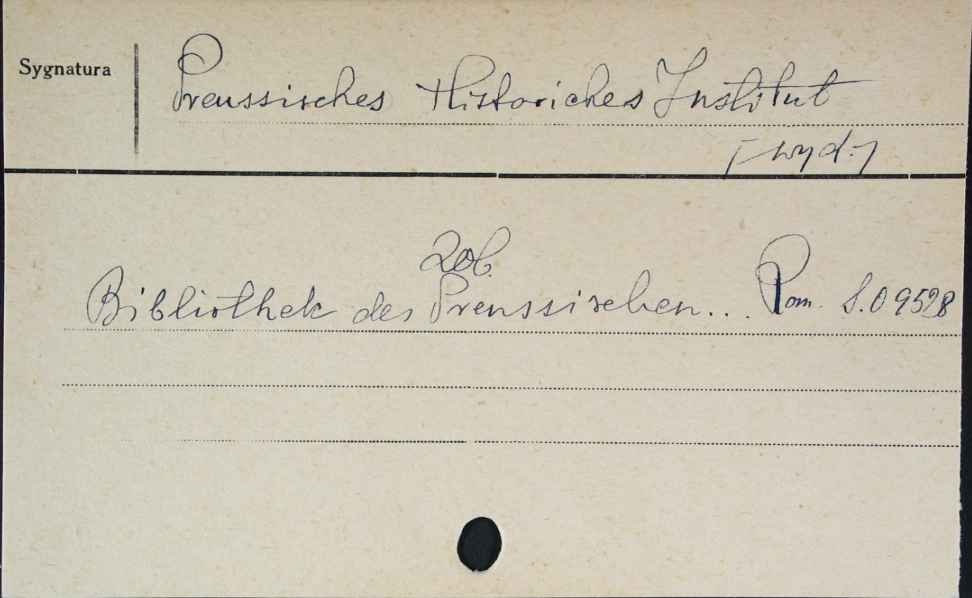 Sygnatura
Preussisches Historiches Institut
[-wyd.]
zob.
Bibliothek des Preussischen... Pom. S.O 9528